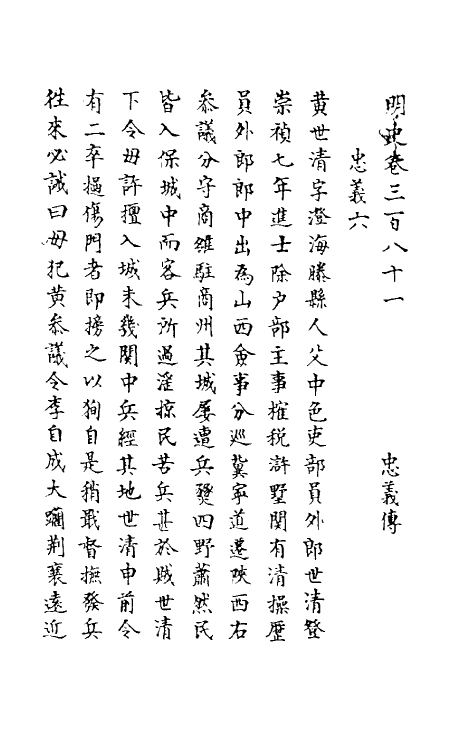 明史卷三百八十一
忠義六 忠義傳
黄世清字澄海滕縣人父中色吏部員外郎世清登
崇禎七年進士除户部主事榷税滸墅関有清操歷
員外郎郎中出為山西僉事分巡冀寧道遷陜西右
叅議分守商雒駐商州其城屡遭兵燹四野蕭然民
皆入保城中而客兵所過淫掠民苦兵甚於賊世清
下令毋許擅入城未幾関中兵經其地世清申前令
有二卒撾傷門者即搒之以狥自是稍戢督撫發兵
徃來必誡曰毋犯黄叅議令李自成大躪荆襄遠近